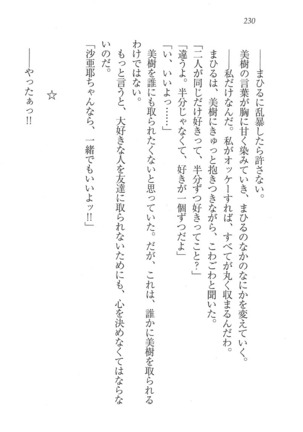 230
――まひるに乱暴したら許さない。
美樹の言葉が胸に甘く染みていき、まひるのなかのなにかを変えていく。
――私だけなんだ。私がオッケーすれば、すべてが丸く収まるんだわ。
まひるは、美樹にきゅっと抱きつきながら、こわごわと聞いた。
「二人が同じだけ好きって、半分ずつ好きってこと？」
「違うよ。半分じゃなくて、好きが一個ずつだよ」
「い、いいよっ……」
美樹を誰にも取られたくないと思っていた。だが、これは、誰かに美樹を取られる
わけではない。
もっと言うと、大好きな人を友達に取られないためにも、心を決めなくてはならな
いのだ。
「沙亜耶ちゃんなら、一緒でもいいよッ!!」
☆
――やったぁっ!!